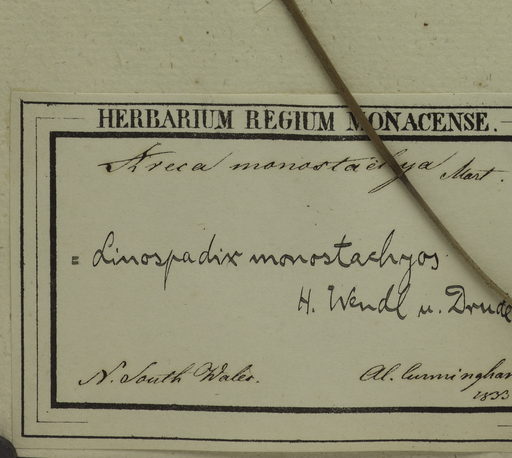 HERBARIUM REGIUM MONACENSE.
Areca monostachya Mart.
= Linospadix monostachyos
H. Wendl u. Drude
N. South Wales. Al. Cunningham
1833